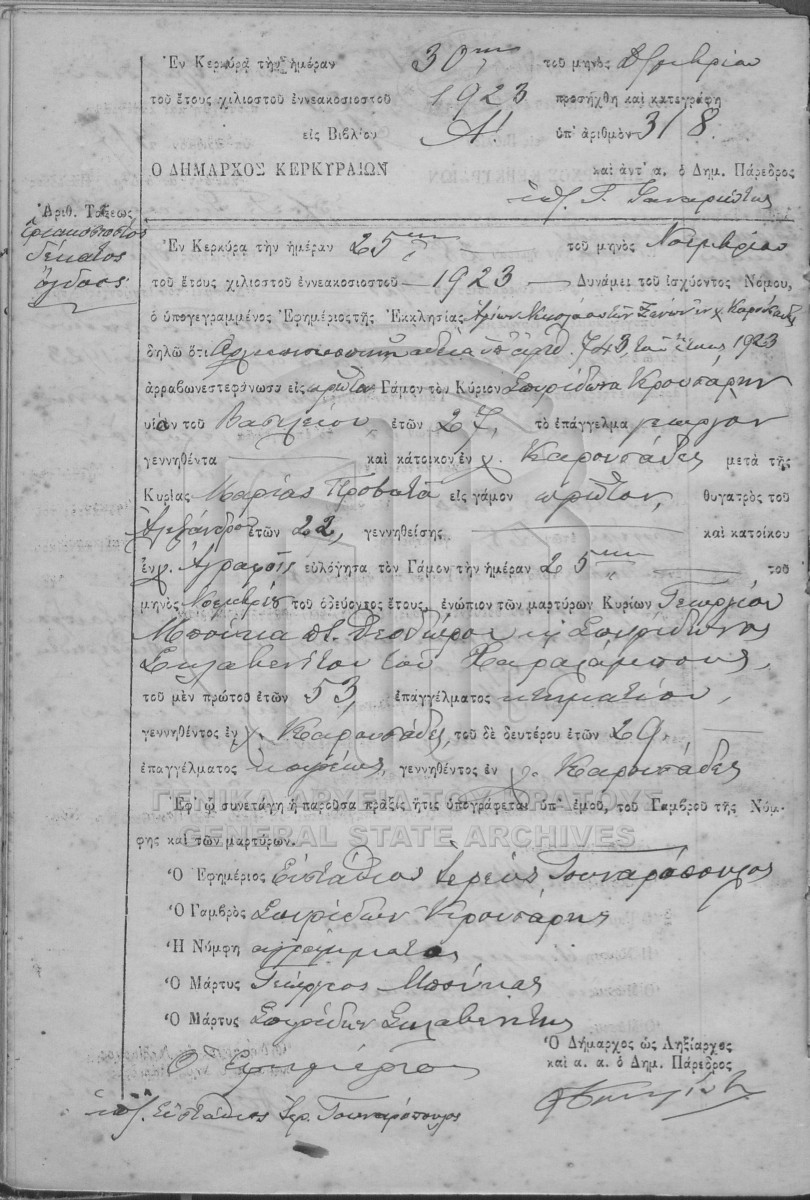 Ἐν Κερκύρᾳ τὴν ἡμέραν 30ην τοῦ μηνὸς
τοῦ ἔτους χιλιοστοῦ ἐννεακοσιοστοῦ 1923 προσήχθη καὶ κατεγράφη
εἰς Βιβλίον Α! ὑπ' ἀριθμὸν 318.
Ο ΔΗΜΑΡΧΟΣ ΚΕΡΚΥΡΑΙΩΝ καὶ ἀντ' α. ὁ Δημ. Πάρεδρος
Ἀριθ. Τάξεως
τριακοσιοστὸς
δέκατος
ὄγδοος
Ἐν Κερκύρᾳ τὴν ἡμέραν 25ην τοῦ μηνὸς Νοεμβρίου
τοῦ ἔτους χιλιοστοῦ ἐννεακοσιοστοῦ 1923 Δυνάμει τοῦ ἰσχύοντος Νόμου,
ὁ ὑπογεγραμμένος Ἐφημέριος τῆς Ἐκκλησίας Ἁγίων χ. Καρουσάδες
δηλῶ ὅτι ἀδείᾳ ὑπ' ἀριθ. 743, 1923
ἀρραβωνεστεφάνωσα εἰς πρῶτον Γάμον τὸν Κύριον Σπυρίδωνα Κρουσάρην
υἱὸν τοῦ Βασιλείου, ἐτῶν 27, τὸ ἐπάγγελμα γεωργὸν
γεννηθέντα καὶ κάτοικον ἐν χ. Καρουσάδες μετὰ τῆς
Κυρίας Μαρίας Προβατᾶ εἰς γάμον πρῶτον, θυγατρὸς τοῦ
Ἀλεξάνδρου ἐτῶν 22, γεννηθείσης καὶ κατοίκου
ἐν χ. Ἀγραφοῖς εὐλόγησα τὸν Γάμον τὴν ἡμέραν 25ην τοῦ
μηνὸς Νοεμβρίου τοῦ ὁδεύοντος ἔτους, ἐνώπιον τῶν μαρτύρων Κυρίων Γεωργίου
Μπούκα Θεοδώρου κ Σπυρίδωνος
Σκλαβενίτου τοῦ Χαραλάμπους,
τοῦ μὲν πρώτου ἐτῶν 53, ἐπαγγέλματος κτηματίου,
γεννηθέντος ἐν χ. Καρουσάδες, τοῦ δὲ δευτέρου ἐτῶν 29,
ἐπαγγέλματος κουρέως, γεννηθέντος ἐν χ. Καρουσάδες
ΓΕΝΙΚΑ ΑΡΧΕΙΑ ΤΟΥ ΚΡΑΤΟΥΣ
Ἐφ' ᾧ συνετάγη ἡ παροῦσα πρᾶξις ἥτις ὑπογράφεται ὑπ' ἐμοῦ, τοῦ Γαμβροῦ τῆς Νύμ-
GENERAL STATE ARCHIVES
φης καὶ τῶν μαρτύρων.
Ὁ Ἐφημέριος Εὐστάθιος Ἱερεὺς Τουναρόπουλος
Ὁ Γαμβρὸς Σπυρίδων Κρουσάρης
Ἡ Νύμφη ἀγράμματος
Ὁ Μάρτυς Γεώργιος Μπούκας
Ὁ Μάρτυς Σπυρίδων Σκλαβενίτης
Ὁ Δήμαρχος ὡς Ληξίαρχος
καὶ α. α. ὁ Δημ. Πάρεδρος
Ὁ Ἐφημέριος
Εὐστάθιος Ἱερ. Τουναρόπουλος